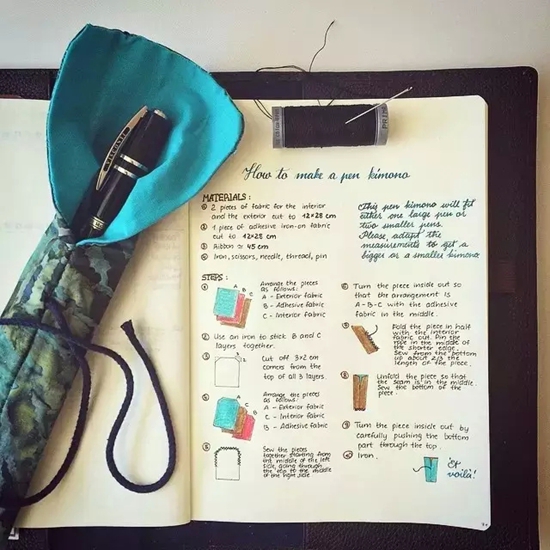 How to make a pen kimono
MATERIALS:
① 2 pieces of fabric for the interior
and the exterior cut to 12×28 cm
② 1 piece of adhesive iron-on fabric
cut to 12×28 cm
③ Ribbon or 45 cm
④ Iron, scissors, needle, thread, pin
This pen kimono will fit
either one large pen or
two smaller pens.
Please, adapt the
measurements to get a
bigger or a smaller kimono
STEPS:
① Arrange the pieces
as follows:
A - Exterior fabric
B - Adhesive fabric
C - Interior fabric
A B C
② Use an iron to stick B and C
layers together.
③ Cut off 3×2 cm
corners from the
top of all 3 layers.
④ Arrange the pieces
as follows:
A - Exterior fabric
C - Interior fabric
B - Adhesive fabric
A C B
⑤ Sew the pieces
together starting from
the middle of the left
side, going through
the top to the middle
of the right side
⑥ Turn the piece inside out so
that the arrangement is
A-B-C with the adhesive
fabric in the middle.
⑦ Fold the piece in half
with the interior
fabric out. Pin the
in the middle of
the shorter edge.
Sew from the bottom
up about 2/3 the
length of the piece.
⑧ Unfold the piece so that
the seam is in the middle.
Sew the bottom of the
piece.
⑨ Turn the piece inside out by
carefully pushing the bottom
part through the top.
⑩ Iron.
Et
voilà!